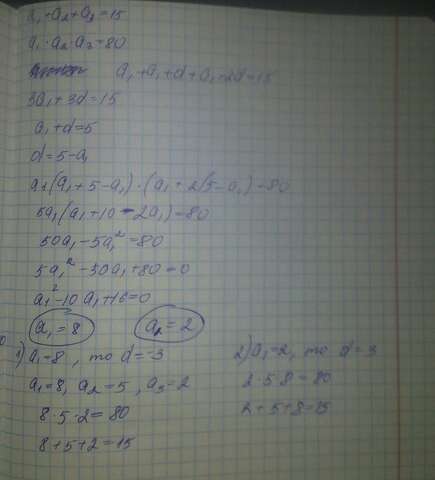 a₁+a₂+a₃=15
a₁·a₂·a₃=80
a₁+a₁+d+a₁+2d=15
3a₁+3d=15
a₁+d=5
d=5-a₁
a₁(a₁+5-a₁)·(a₁+2(5-a₁)=80
5a₁(a₁+10-2a₁)=80
50a₁-5a₁²=80
5a₁²-50a₁+80=0
a₁²-10a₁+16=0
a₁=8 a₂=2
1) a₁=8, то d=-3
a₁=8, a₂=5, a₃=2
8·5·2=80
8+5+2=15
2) a₁=2, то d=3
2·5·8=80
2+5+8=15